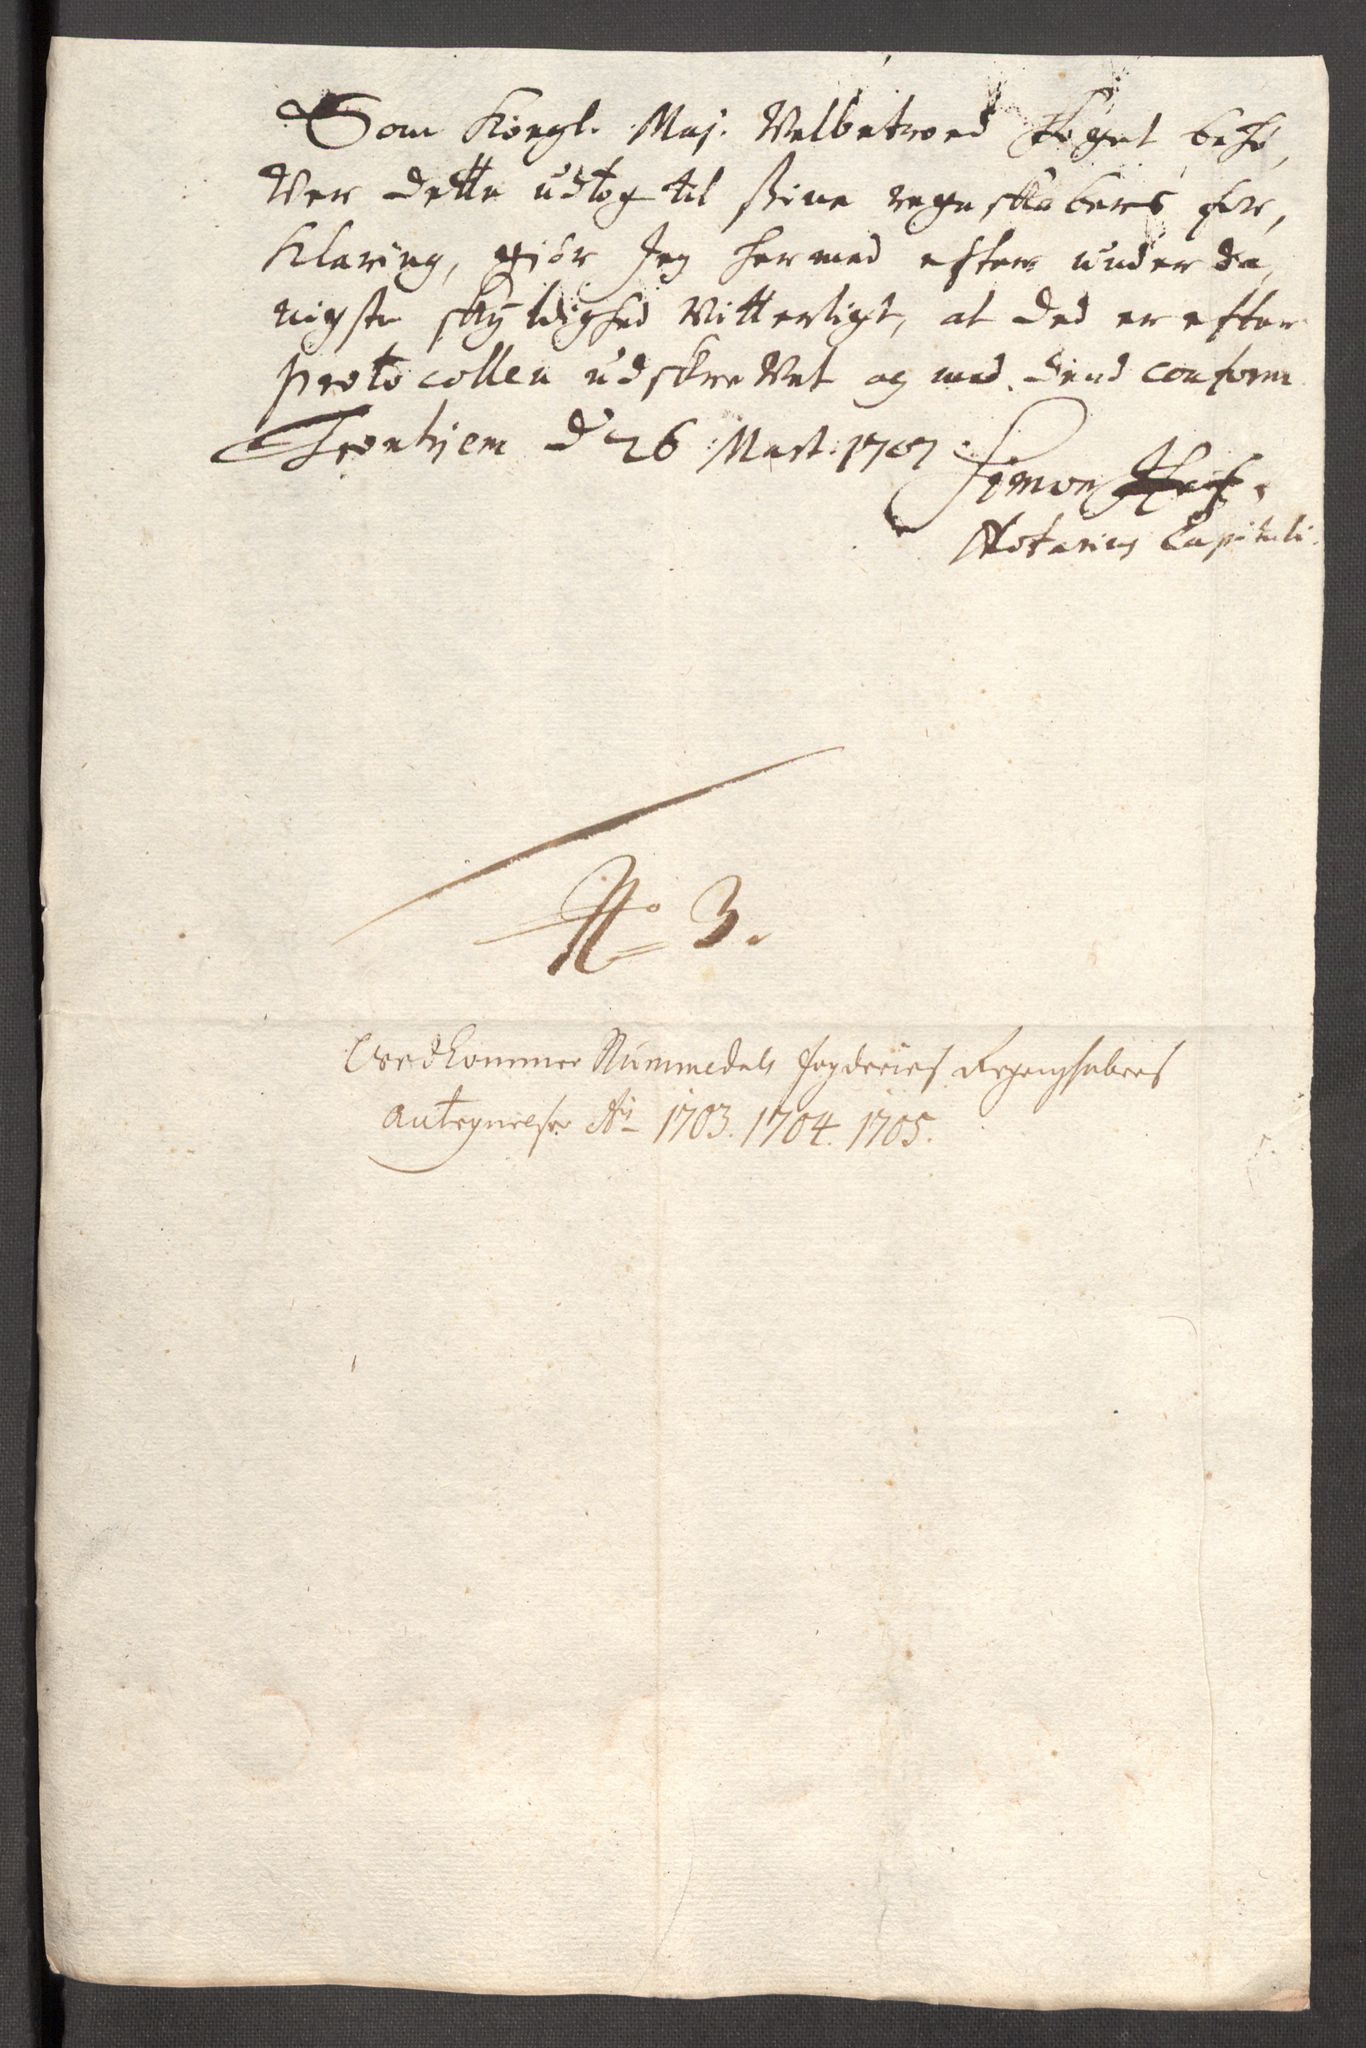 Som Kongl. Maj. Velbetroed Foget behø,
Ver dette udtog til sine regnskabers for,
Klaring, giör Jeg hermed efter under da,
nigste skÿldighed Vitterligt, at ded er efter
protocollen udskrevet og med dend conform
Tronhjem d 26 Mart: 1707.
Simon
Notarius Capituli.
No 3.
Vedkommer Nummedals fogderies Regenschabers
Antegnelser Ao 1703. 1704. 1705.